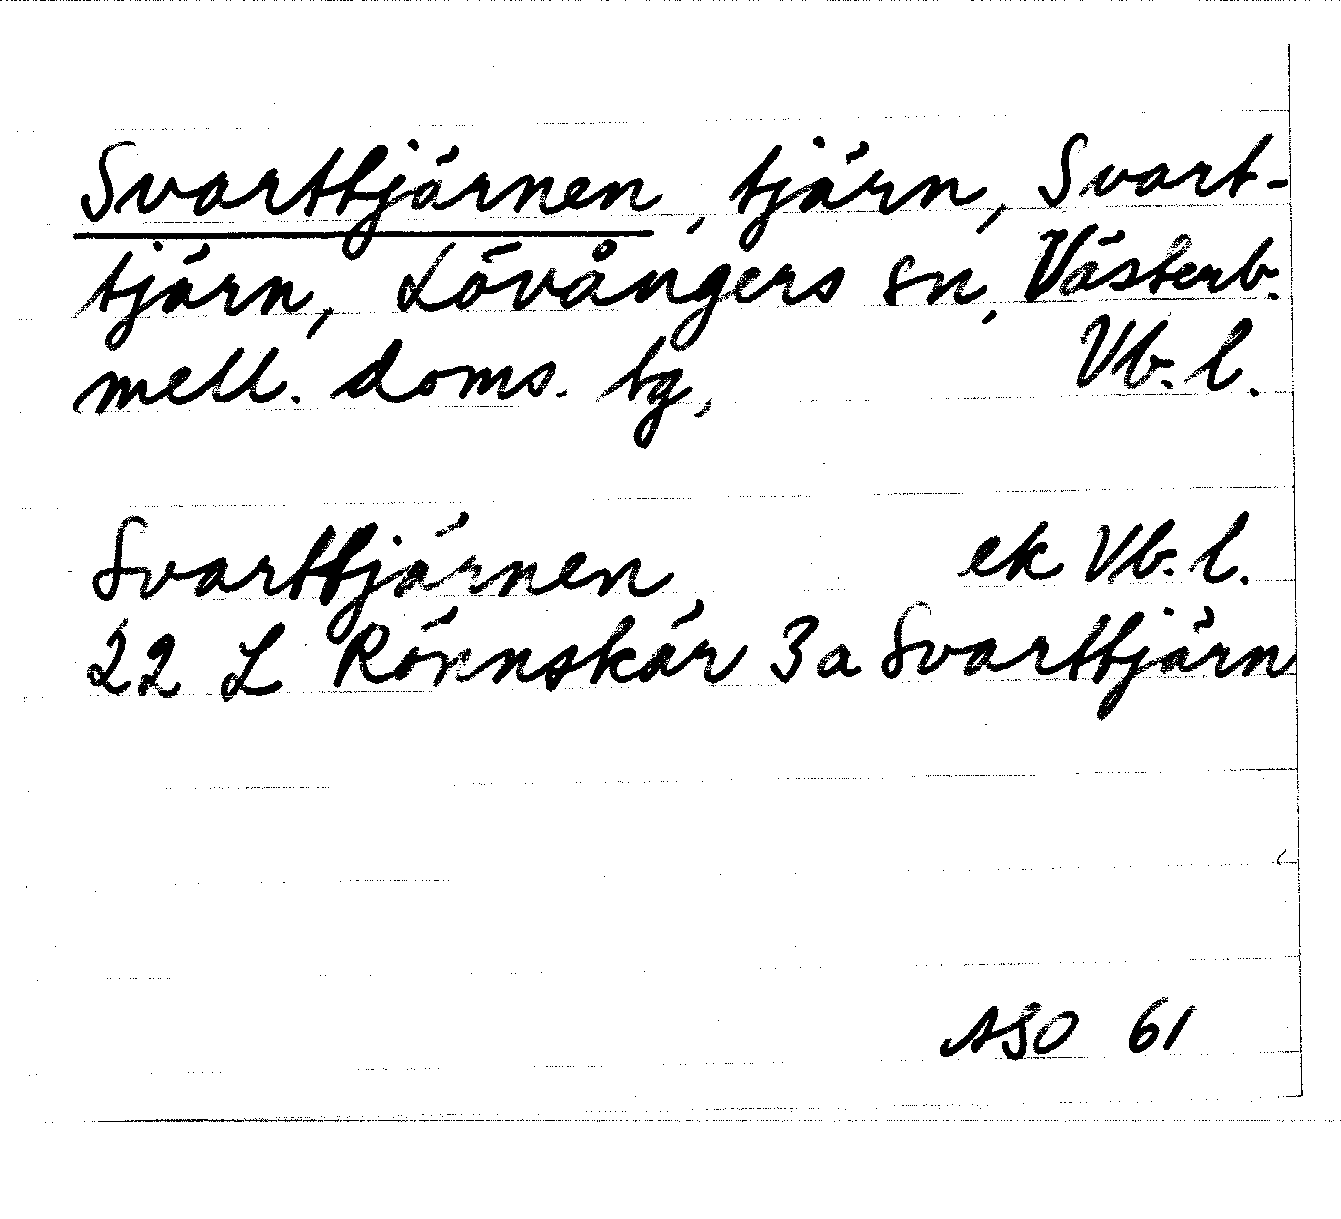 Svarttjärnen, tjärn, Svart-
tjärn, Lövångers sn, Västerb.
mell. doms. tg, Vb. l.
Svarttjärnen, ek Vb. l.
22 L Rönnskär 3a Svarttjärn
ASO 61